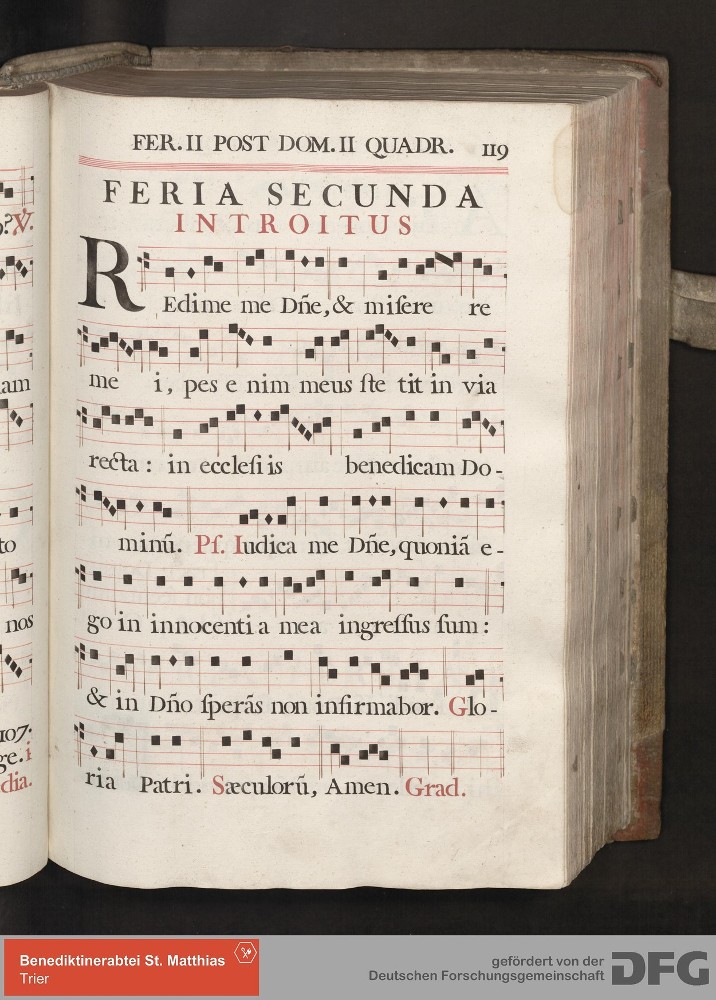 ꝰ? ℣.
am
to
nos
107.
ge. i
dia.
FER. II POST DOM. II QUADR. 119
FERIA SECUNDA
INTROITUS
REdime me Dñe, & miſere re
me i, pes e nim meus ſte tit in via
recta : in eccleſiis benedicam Do-
minũ. Pſ. Iudica me Dñe, quoniã e-
go in innocenti a mea ingreſſus ſum :
& in Dño ſperãs non infirmabor. Glo-
ria Patri. Sæculorũ, Amen. Grad.
Benediktinerabtei St. Matthias
Trier
gefördert von der
Deutschen Forschungsgemeinschaft
DFG